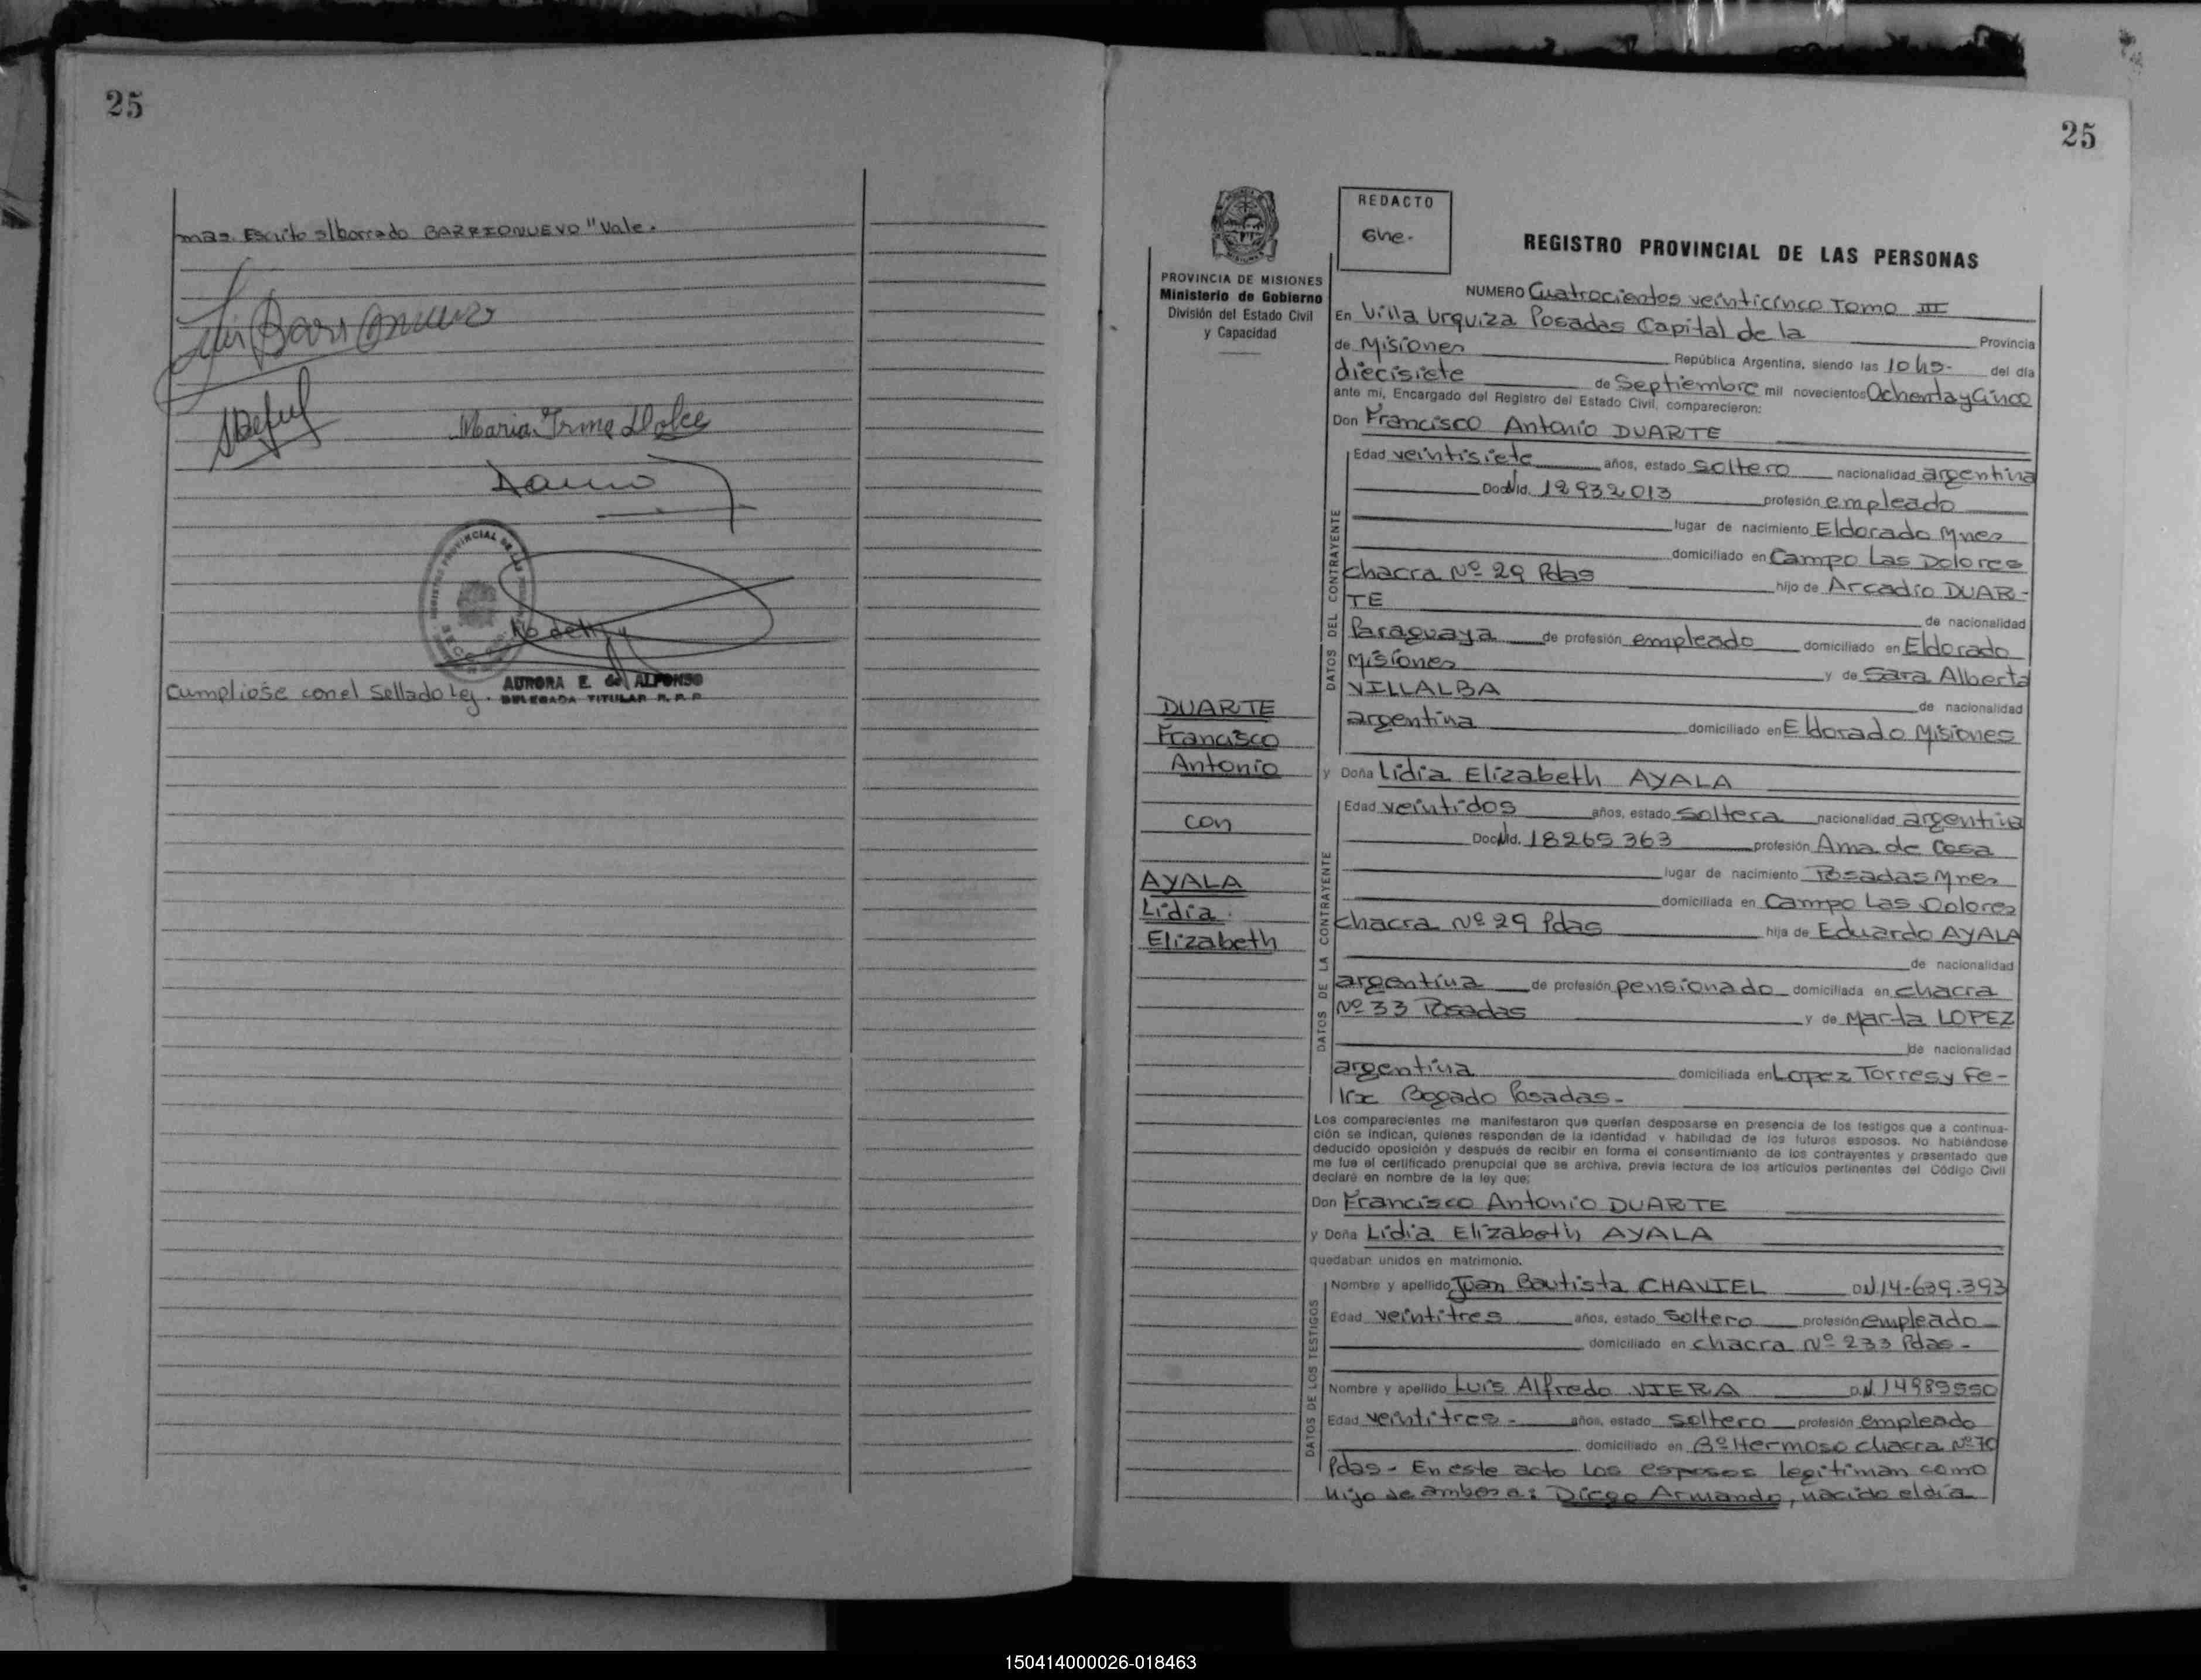 25
mas. Escrito s/borrado BARRIONUEVO "Vale.
Luis Barrionuevo
Maria Irma Dolce
REGISTRO PROVINCIAL DE LAS
Cumpliose con el Sellado Ley.
AURORA E. de ALFONSO
DELEGADA TITULAR R. P. P.
25
REDACTO
Ghe.
PROVINCIA DE MISIONES
Ministerio de Gobierno
División del Estado Civil
y Capacidad
REGISTRO PROVINCIAL DE LAS PERSONAS
NUMERO Cuatrocientos veinticinco Tomo III
En Villa Urquiza Posadas Capital de la Provincia
de Misiones República Argentina, siendo las 10 hs- del día
diecisiete de Septiembre mil novecientos Ochenta y Cinco
ante mi, Encargado del Registro del Estado Civil, comparecieron:
Don Francisco Antonio DUARTE
DATOS DEL CONTRAYENTE
Edad veintisiete años, estado soltero nacionalidad argentina
Doc. Nd. 12932013 profesión empleado
lugar de nacimiento Eldorado Mnes
domiciliado en Campo Las Dolores
chacra Nº 29 Pdas hijo de Arcadio DUAR-
TE de nacionalidad
Paraguaya de profesión empleado domiciliado en Eldorado
Misiones y de Sara Alberta
VILLALBA de nacionalidad
argentina domiciliado en Eldorado Misiones
DUARTE
Francisco
Antonio
con
AYALA
Lidia
Elizabeth
y Doña Lidia Elizabeth AYALA
DATOS DE LA CONTRAYENTE
Edad veintidos años, estado soltera nacionalidad argentina
Doc. Nd. 18265363 profesión Ama de Casa
lugar de nacimiento Posadas Mnes
domiciliada en Campo Las Dolores
chacra Nº 29 Pdas hija de Eduardo AYALA
de nacionalidad
argentina de profesión pensionado domiciliada en chacra
Nº 33 Posadas y de Marta LOPEZ
de nacionalidad
argentina domiciliada en Lopez Torres y Fe-
lix Bogado Posadas-
Los comparecientes me manifestaron que querían desposarse en presencia de los testigos que a continua-
ción se indican, quienes responden de la identidad y habilidad de los futuros esposos. No habiéndose
deducido oposición y después de recibir en forma el consentimiento de los contrayentes y presentado que
me fue el certificado prenupcial que se archiva, previa lectura de los artículos pertinentes del Código Civil
declaré en nombre de la ley que:
Don Francisco Antonio DUARTE
y Doña Lidia Elizabeth AYALA
quedaban unidos en matrimonio.
DATOS DE LOS TESTIGOS
Nombre y apellido Juan Bautista CHAVIEL DN 14-639.393
Edad veintitres años, estado soltero profesión empleado
domiciliado en chacra Nº 233 Pdas-
Nombre y apellido Luis Alfredo VIERA DN 14989550
Edad veintitres- años, estado soltero profesión empleado
domiciliado en Bº Hermoso chacra Nº 70
Pdas- En este acto los esposos legitiman como
hijo de ambos a: Diego Armando, nacido el día
150414000026-018463